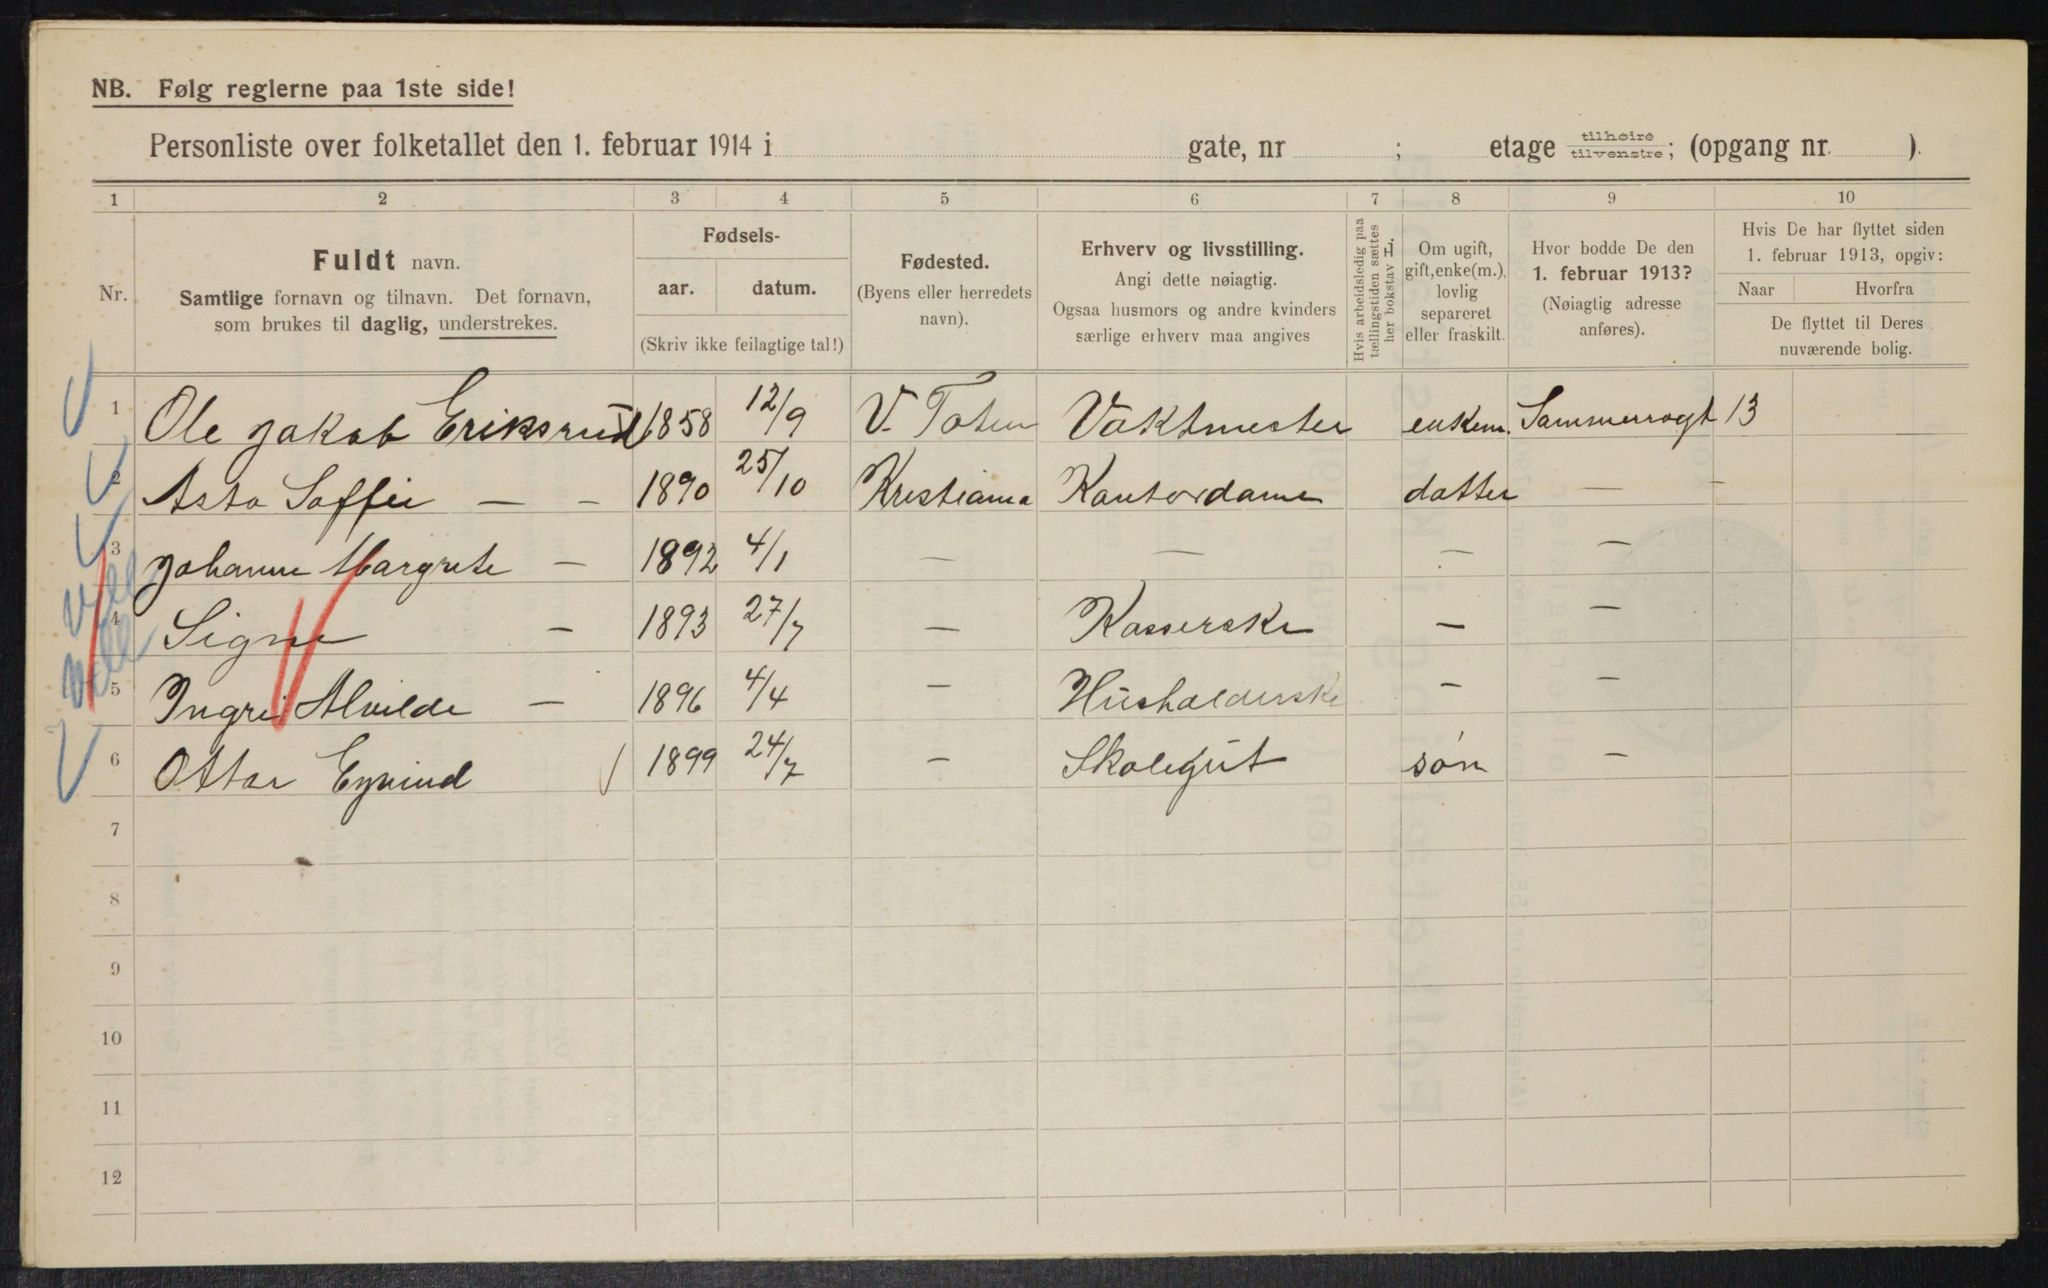 NB. Følg reglerne paa 1ste side!
Personliste over folketallet den 1. februar 1914 i gate, nr ; etage tilhøire tilvenstre; (opgang nr. ).
1 2 3 4 5 6 7 8 9 10
Nr.
Fuldt navn.
Samtlige fornavn og tilnavn. Det fornavn,
som brukes til daglig, understrekes.
Fødsels-
aar. datum.
(Skriv ikke feilagtige tal!)
Fødested.
(Byens eller herredets
navn).
Erhverv og livsstilling.
Angi dette nøiagtig.
Ogsaa husmors og andre kvinders
særlige erhverv maa angives
Hvis arbeidsledig paa
tællingstiden sættes
her bokstav L.
Om ugift,
gift, enke(m.),
lovlig
separeret
eller fraskilt.
Hvor bodde De den
1. februar 1913?
(Nøiagtig adresse
anføres).
Hvis De har flyttet siden
1. februar 1913, opgiv:
Naar Hvorfra
De flyttet til Deres
nuværende bolig.
1 Ole Jakob Eriksrud 1858 12/9 V. Toten Vaktmester enkem. Sommerrogt 13
2 Asta Soffie — — 1890 25/10 Kristiania Kontordame datter — —
3 Johanne Margrete — 1892 4/1 — — — —
4 Signe — 1893 27/7 — Kasserske — —
5 Ingri Alvilde — 1896 4/4 — Husholderske — —
6 Ottar Eyvind 1899 24/7 — Skolegut søn —
7
8
9
10
11
12